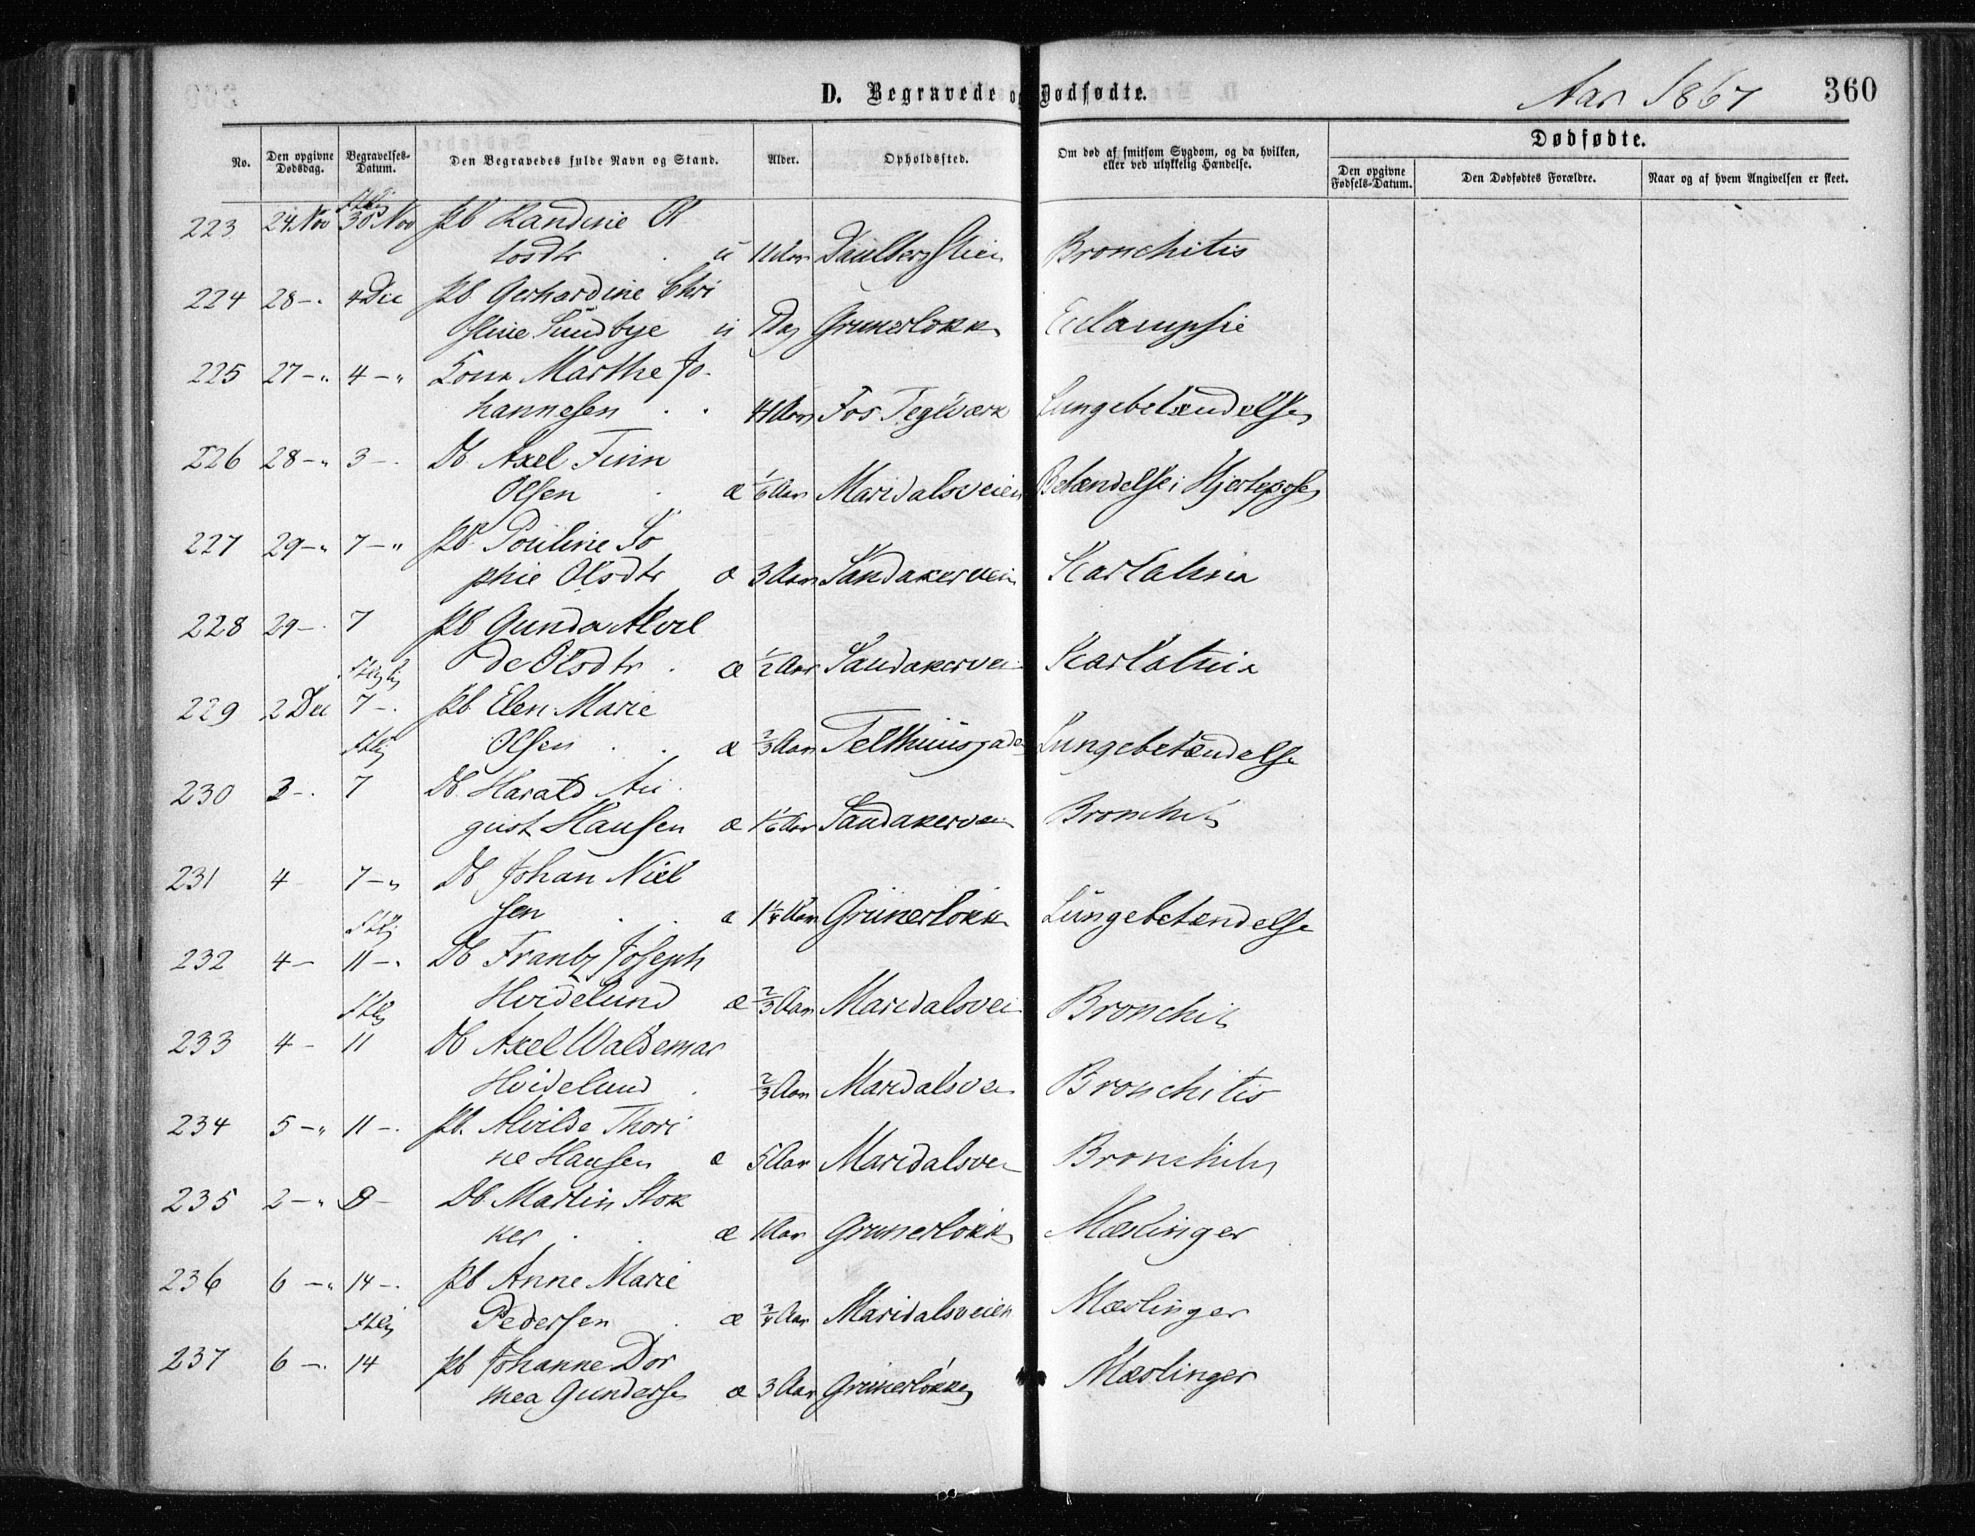 D. Begravede og Dødfødte.
Aar 1867
360
No.
Den opgivne Dødsdag.
Begravelses-Datum.
Den Begravedes fulde Navn og Stand.
Alder.
Opholdssted.
Om død af smitsom Sygdom, og da hvilken, eller ved ulykkelig Hændelse.
Dødfødte.
Den opgivne Fødsels-Datum.
Den Dødfødtes Forældre.
Naar og af hvem Angivelsen er skeet.
223 24 Nov 30 Nov Pb Randine Ol
sdtr u Aar Bronchitis
224 28 -. 4 Dec Pb Gerhardine Chri
stine Sundbye u Dag Grünerløkk Eclampsie
225 27 -„ 4 -„ Kone Marthe Jo-
hannesen . . 41 Aar Fos Teglværk Lungebetændelse
226 28 -„ 3 -. Db Axel Finn
Olsen . æ 1/6 Aar Maridalsveien Betændelse i Hjerteposen
227 29 -„ 7 -„ Pb Pouline So
phie Olsdtr æ 3 Aar Sandakerveien Skarlatina
228 29 -. 7 Pb Gunda Alvil
de Olsdtr . æ 1/2 Aar Sandakervei Skarlatina
229 2 Dec 7 -. Pb Elen Marie
Olsen . . æ 2/3 Aar Telthuusgaden Lungebetændelse
230 3 -. 7 Db Harald Au
gust Hansen æ 1 1/6 Aar Sandakervei Bronchit
231 4 7 -„ Db Johan Niel
sen . . æ 1 1/4 Aar Grünerløkk Lungebetændelse
232 4 - 11 -. Db Frantz Joseph
Hvidelund æ 2/3 Aar Maridalsvei Bronchit
233 4 - 11 Db Axel Waldemar
Hvidelund . 2/3 Aar Maridalsvei Bronchitis
234 5 -„ 11 -. Pb. Alvilde Thori
ne Hansen æ 5 Aar Maridalsvei Bronchitis
235 2 -„ 8 - Db Martin Stok
ker . . æ 1 Aar Grünerløkk Mæslinger
236 6 -„ 14 -. Pb Anne Marie
Pedersen . æ 3/4 Aar Maridalsveien Mæslinger
237 6 -. 14 Pb Johanne Dor
thea Gundersen æ 3 Aar Grünerløkken Mæslinger